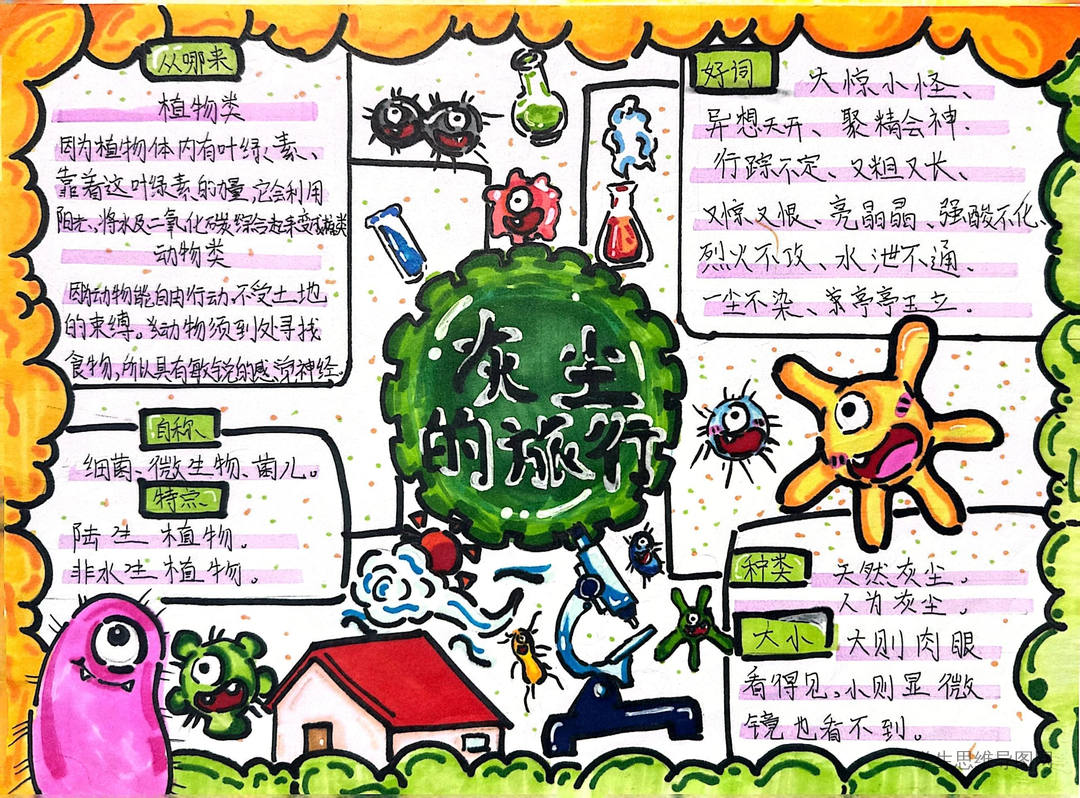 从哪来
植物类
因为植物体内有叶绿素、
靠着这叶绿素的力量,它会利用
阳光、将水及二氧化碳综合起来变成糖类
动物类
因为动物能自由行动、不受土地
的束缚。动物须到处寻找
食物,所以具有敏锐的感觉神经.
自称
细菌、微生物、菌儿。
特点
陆生植物。
非水生植物。
灰尘
的旅行
好词
大惊小怪、
异想天开、聚精会神.
行踪不定、又粗又长、
又惊又恨、亮晶晶、强酸不化、
烈火不攻、水泄不通、
一尘不染、亭亭玉立.
种类
天然灰尘。
人为灰尘。
大小
大则肉眼
看得见,小则显微
镜也看不到。
思维导图